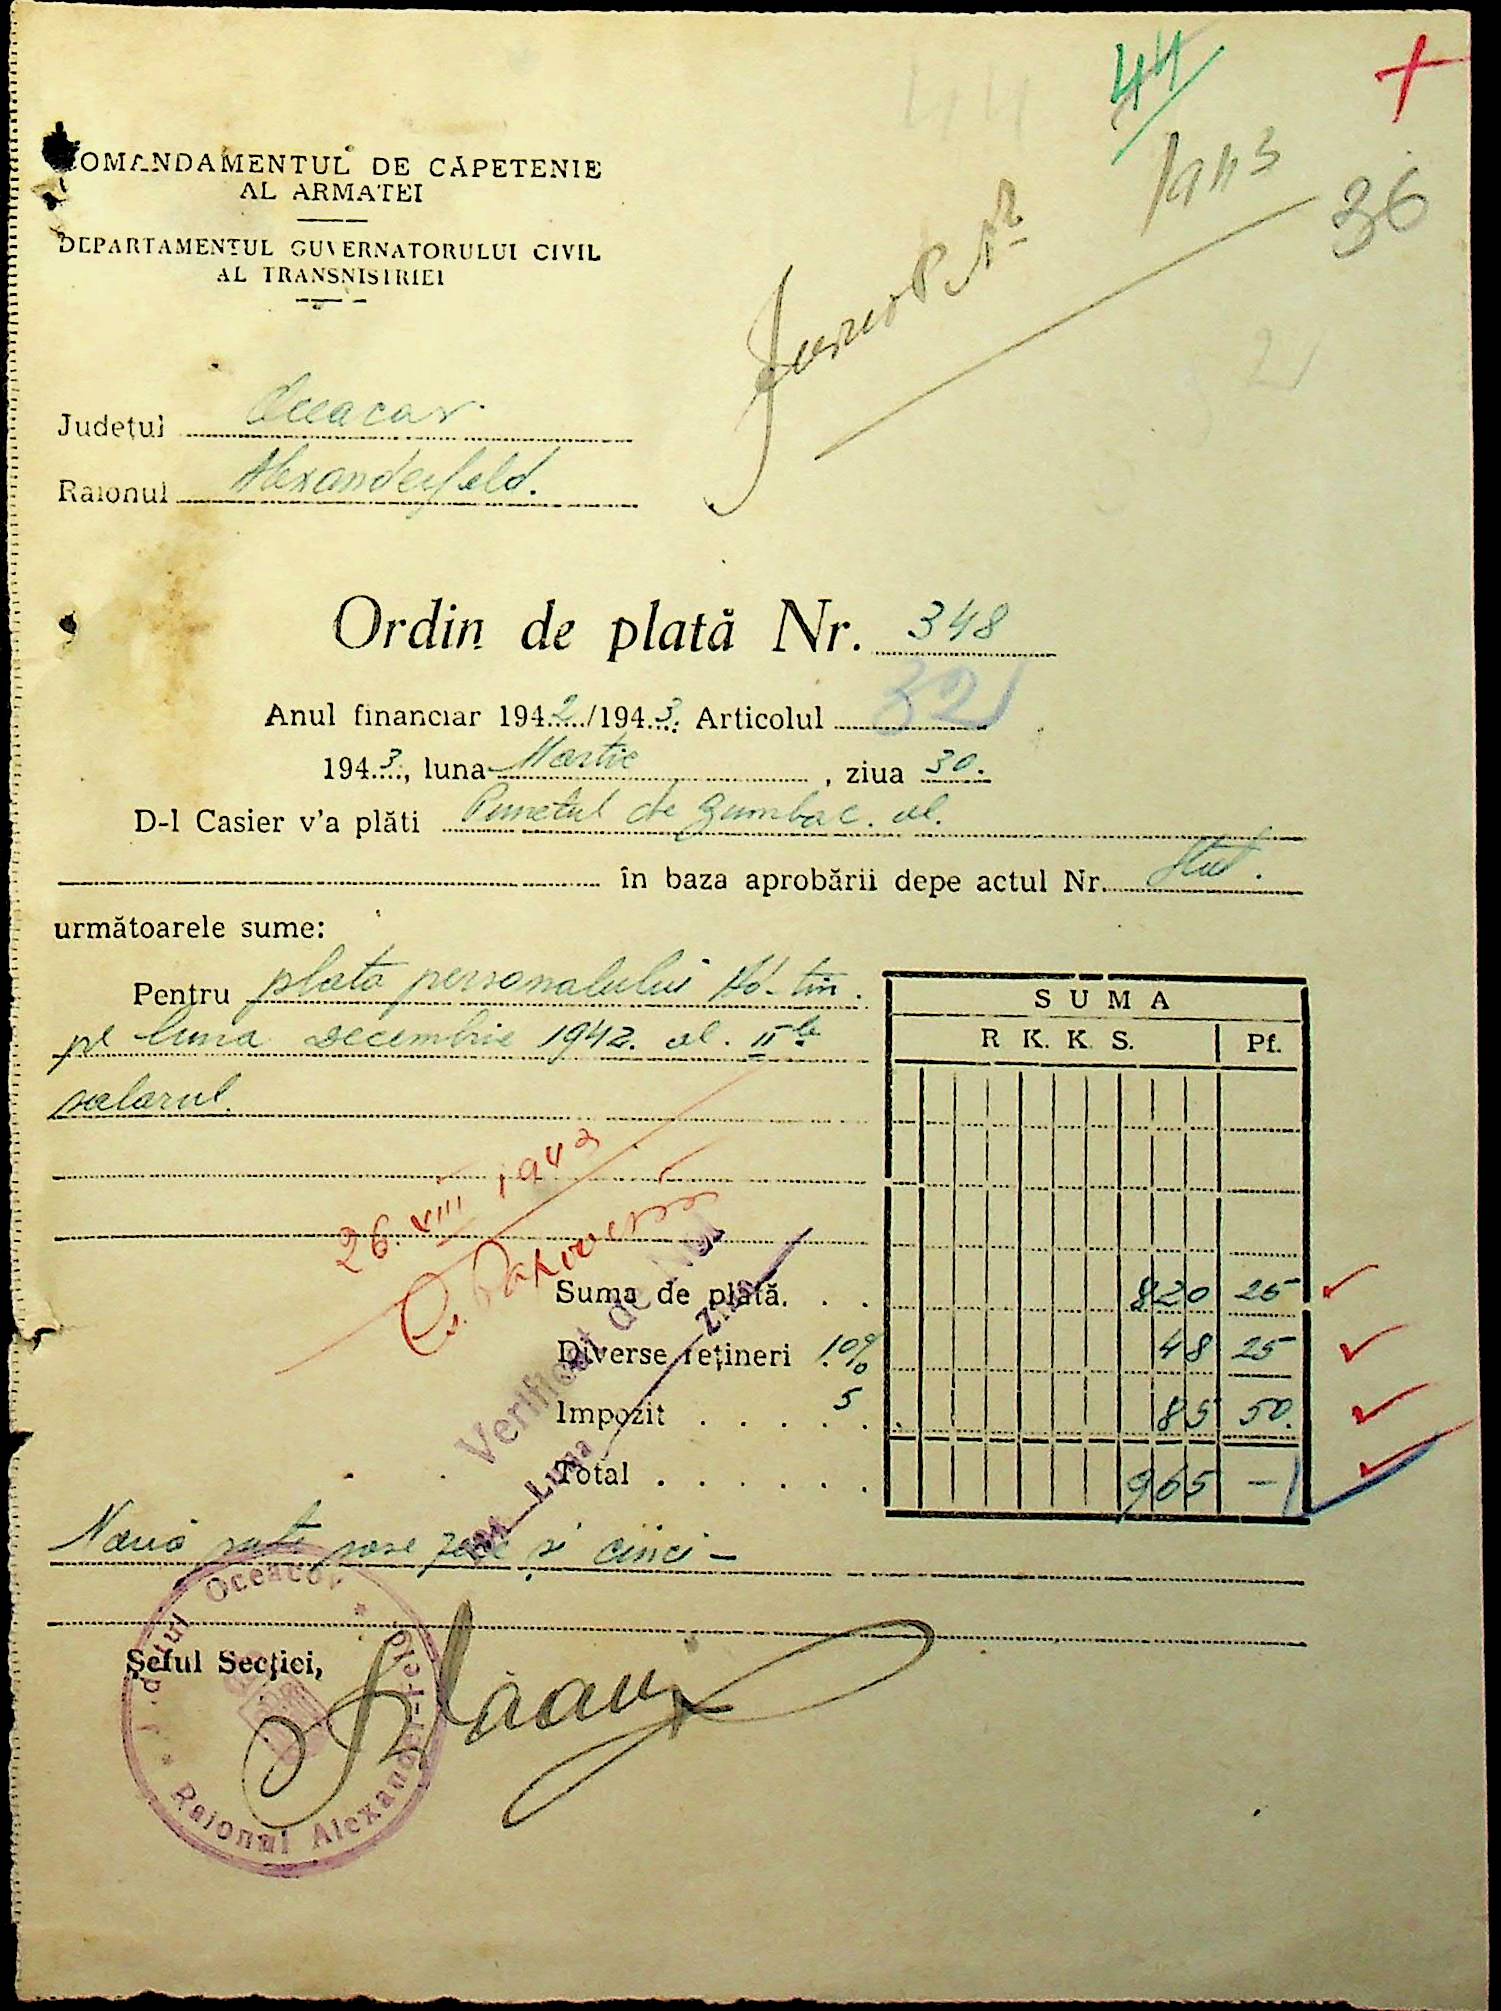 44
1943
36
COMANDAMENTUL DE CĂPETENIE
AL ARMATEI
DEPARTAMENTUL GUVERNATORULUI CIVIL
AL TRANSNISTRIEI
Județul Oceacov.
Raionul Alexanderfeld.
Ordin de plată Nr. 348
32
Anul financiar 1942/1943. Articolul
1943., luna Martie, ziua 30.
D-l Casier v'a plăti Punctul de
în baza aprobării depe actul Nr.
următoarele sume:
Pentru plata personalului
pe luna Decembrie 1942. al. II le
salarul.
SUMA
R K. K S. Pf.
26. VIII 1943
Verificat de Noi
194 Luna Ziua
Suma de plată. . . 820 25
Diverse rețineri 10% 48 25
Impozit . . . . 5 . . 85 50.
Total . . . . . . 965 —
Nouă sute șase zeci și cinci —
Șeful Secției,
Județul Oceacov * Raionul Alexander-Feld *